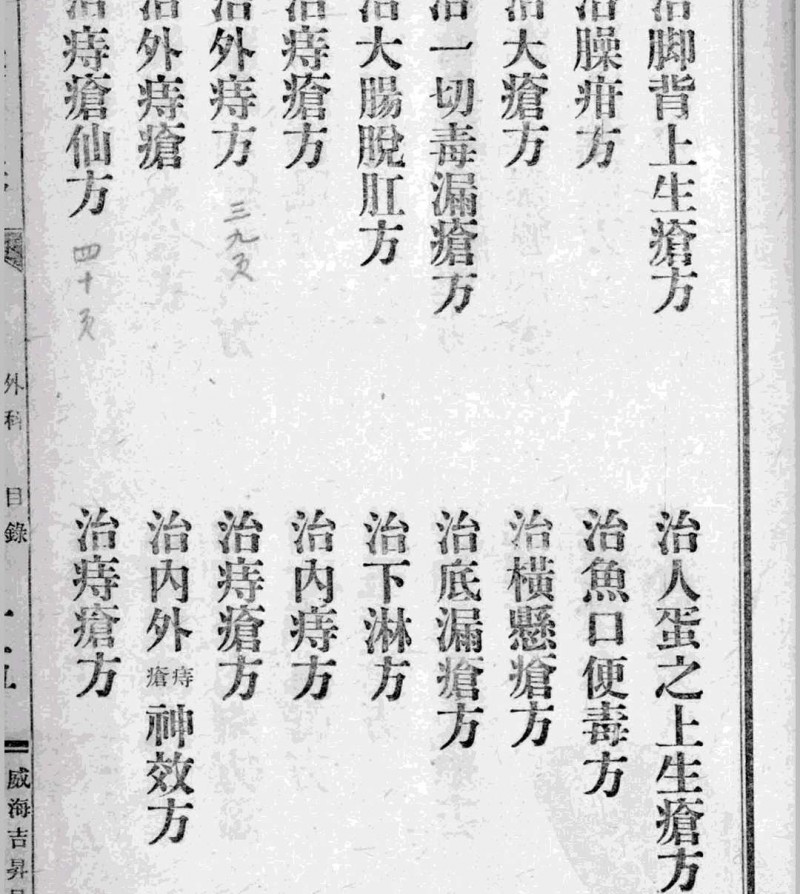 治脚背上生瘡方
治臊疳方
治大瘡方
治一切毒漏瘡方
治大腸脫肛方
治痔瘡方
治外痔方 三九页
治外痔瘡
治痔瘡仙方 四十页
治人蛋之上生瘡方
治魚口便毒方
治橫懸瘡方
治底漏瘡方
治下淋方
治內痔方
治痔瘡方
治內外痔瘡神效方
治痔瘡方
外科 目錄
威海吉昇